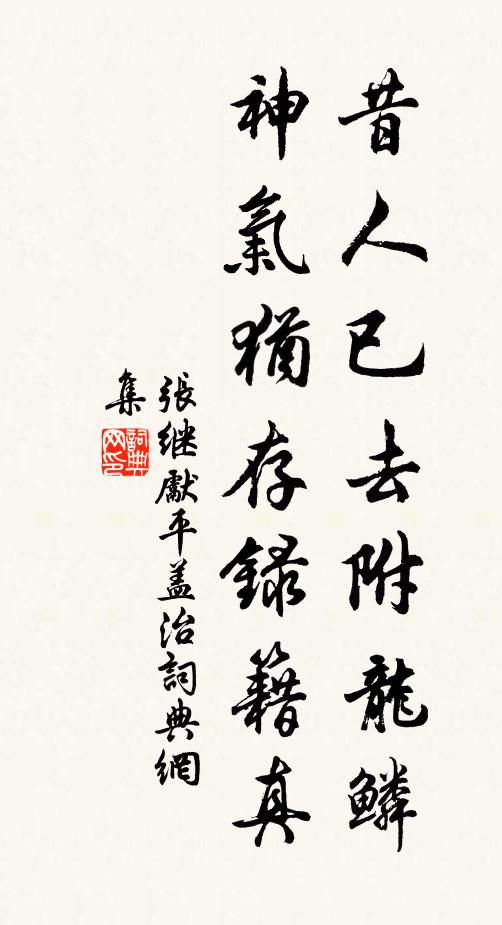 昔人已去附龍鱗
神氣猶存錄籍真
張继獻平蓋治詞典網
集
詞典
网印